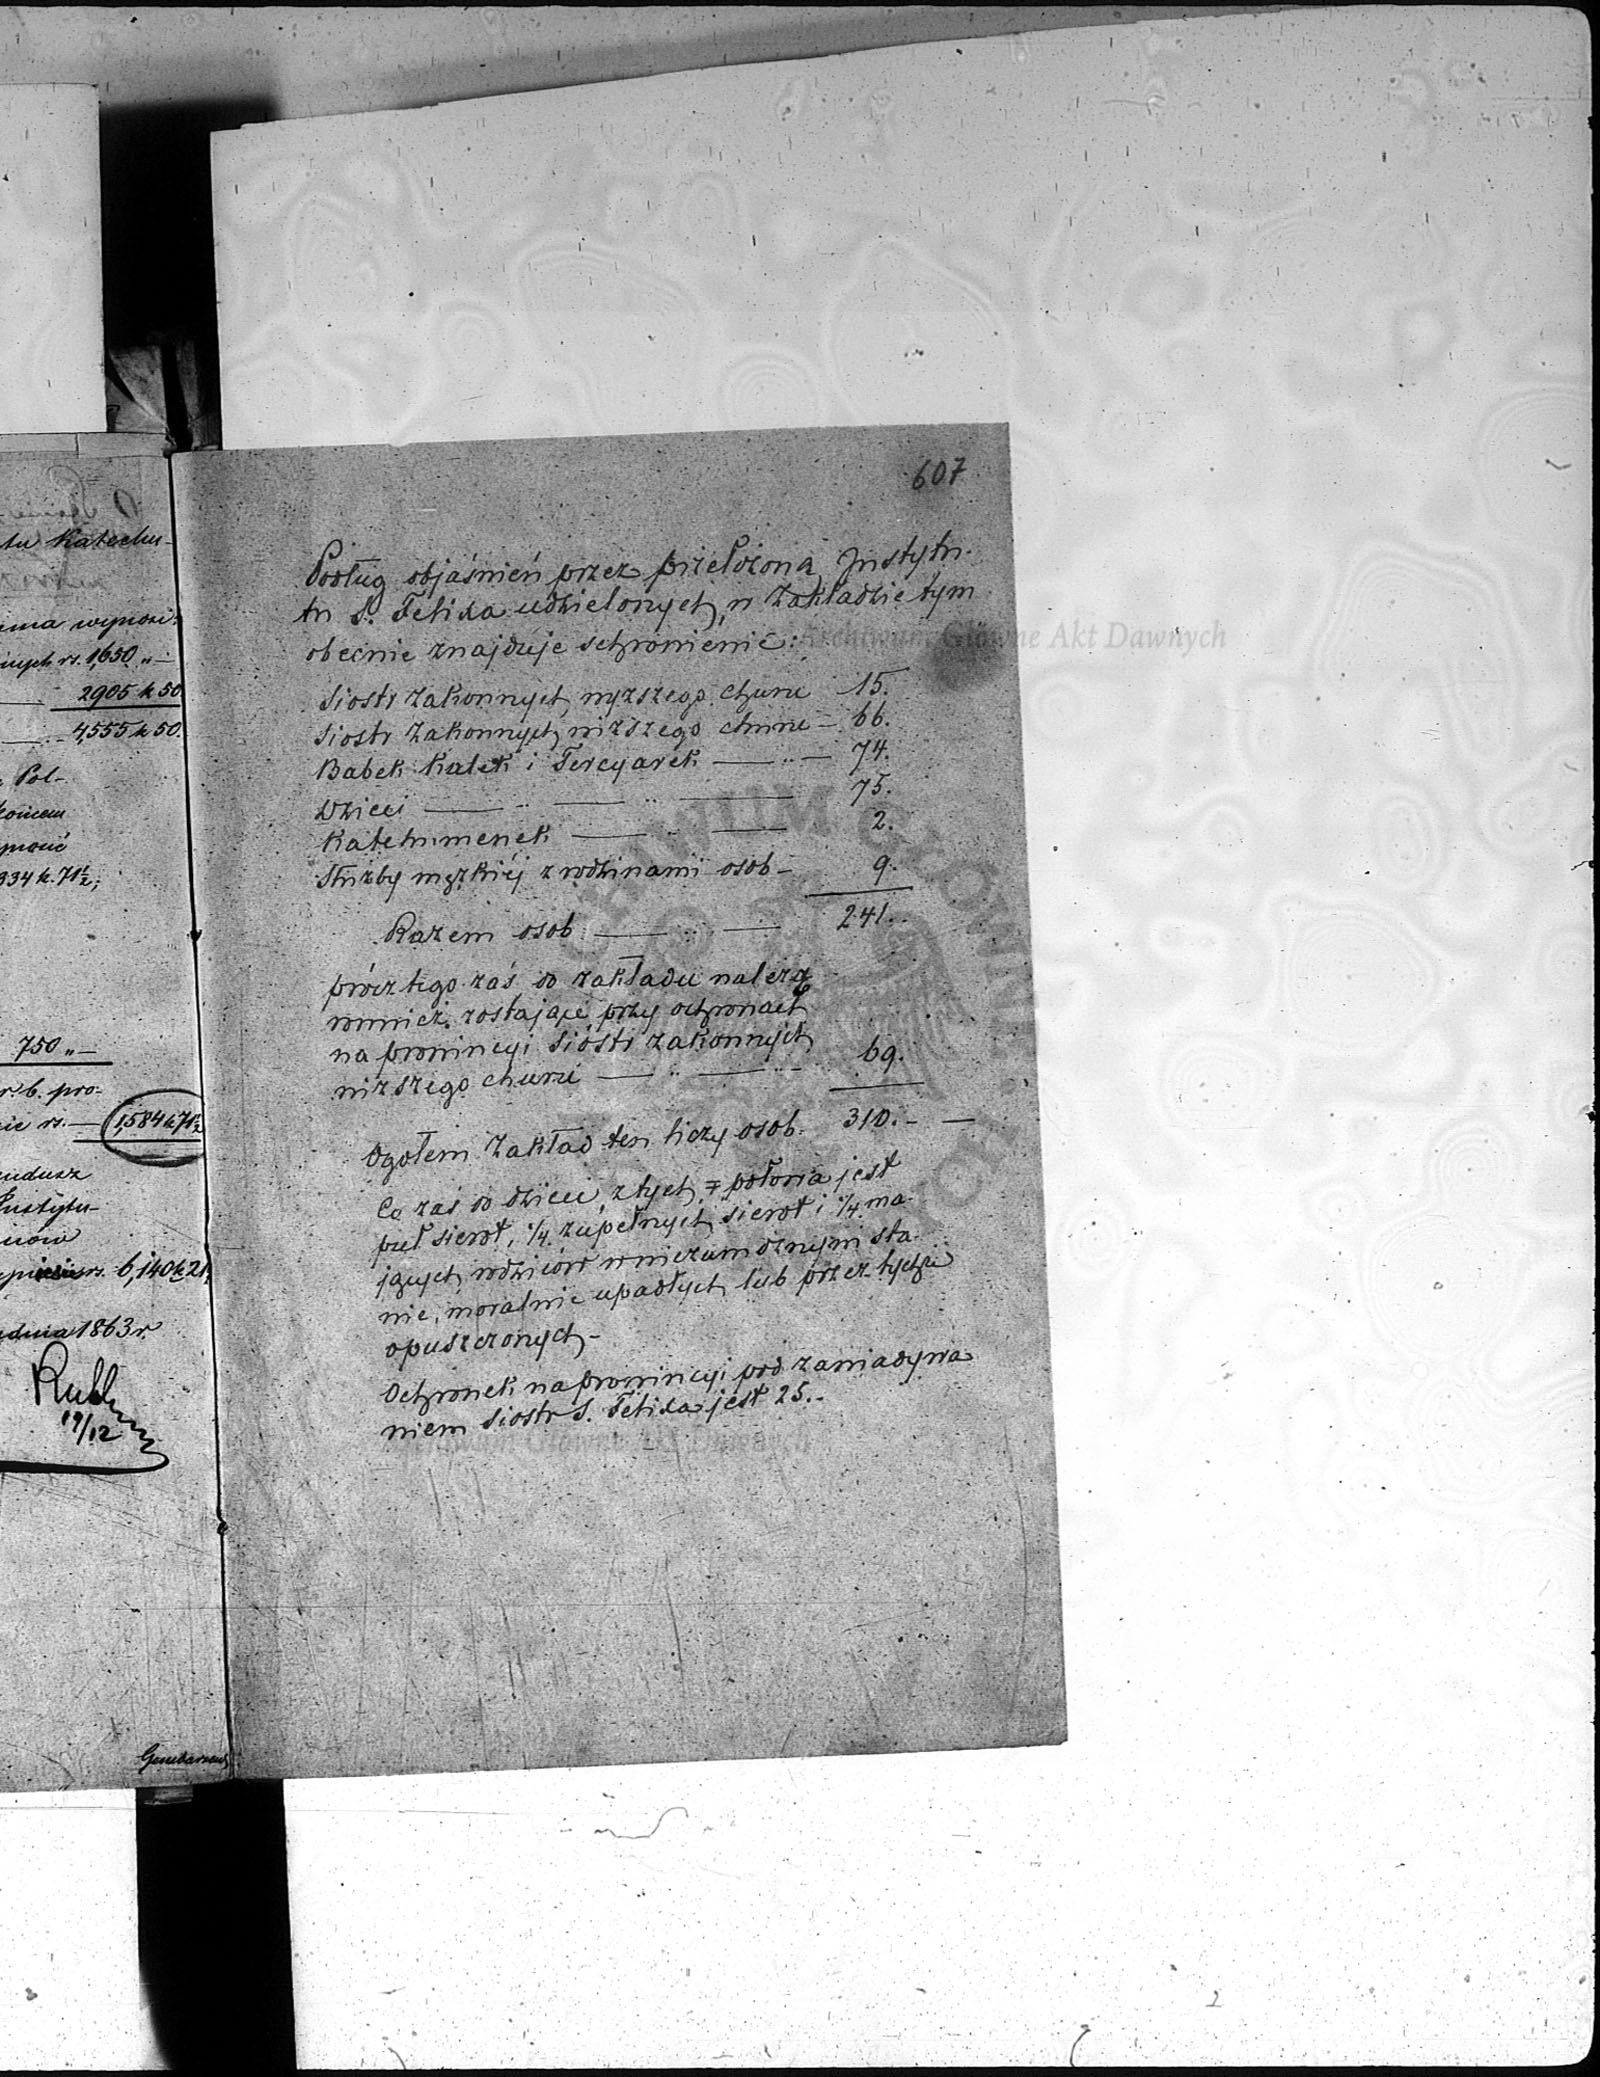 tu Katechu-
wynosi:
rs. 1,650 „—
2905 k 50
4,555 k 50.
Pol-
334 k. 71½;
750 „—
r. b. pro-
rs. — 1,584 k 71½
Instytu-
rs. 6,140 k 21.
1863 r.
19/12
607
Podług objaśnień przez przełożoną Instytu-
tu S. Felixa udzielonych, w Zakładzie tym
obecnie znajduje schronienie:
Siostr Zakonnych wyższego chóru 15.
Siostr Zakonnych niższego chóru — 66.
Babek Kalek i Tercyarek — „ — 74.
Dzieci — „ — „ — 75.
Katechumenek — „ — 2.
Służby męzkiéj z rodzinami osob — 9.
Razem osob — „ — 241.
prócz tego zaś do zakładu należą
rownież zostające przy ochronach
na prowincyi Sióstr Zakonnych
niższego chóru — „ — 69.
Ogołem Zakład ten liczy osob. 310. — —
Co zaś do dzieci, z tych połowa jest
puł sierot, ¼ zupełnych sierot i ¼ ma-
jących rodziców w niezamożnym sta-
nie, moralnie upadłych lub przez tychże
opuszczonych —
Ochronek na prowincyi pod zawiadywa-
niem Siostr S. Felixa jest 25. —
Archiwum Główne Akt Dawnych
Archiwum Główne Akt Dawnych